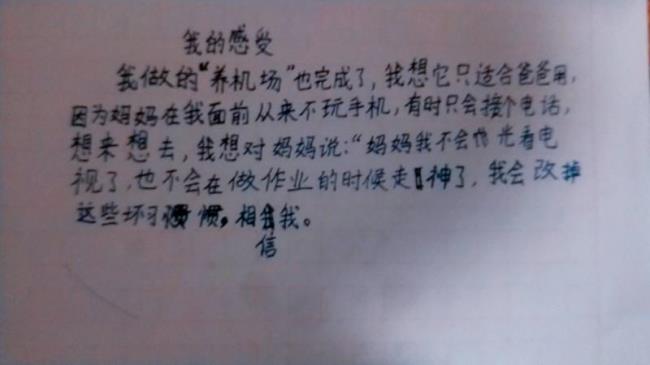 我的感受
我做的“养机场”也完成了,我想它只适合爸爸用,
因为妈妈在我面前从来不玩手机,有时只会接个电话,
想来想去,我想对妈妈说:“妈妈我不会 光看电
视了,也不会在做作业的时候走神了,我会改掉
这些坏习惯,相我。
信